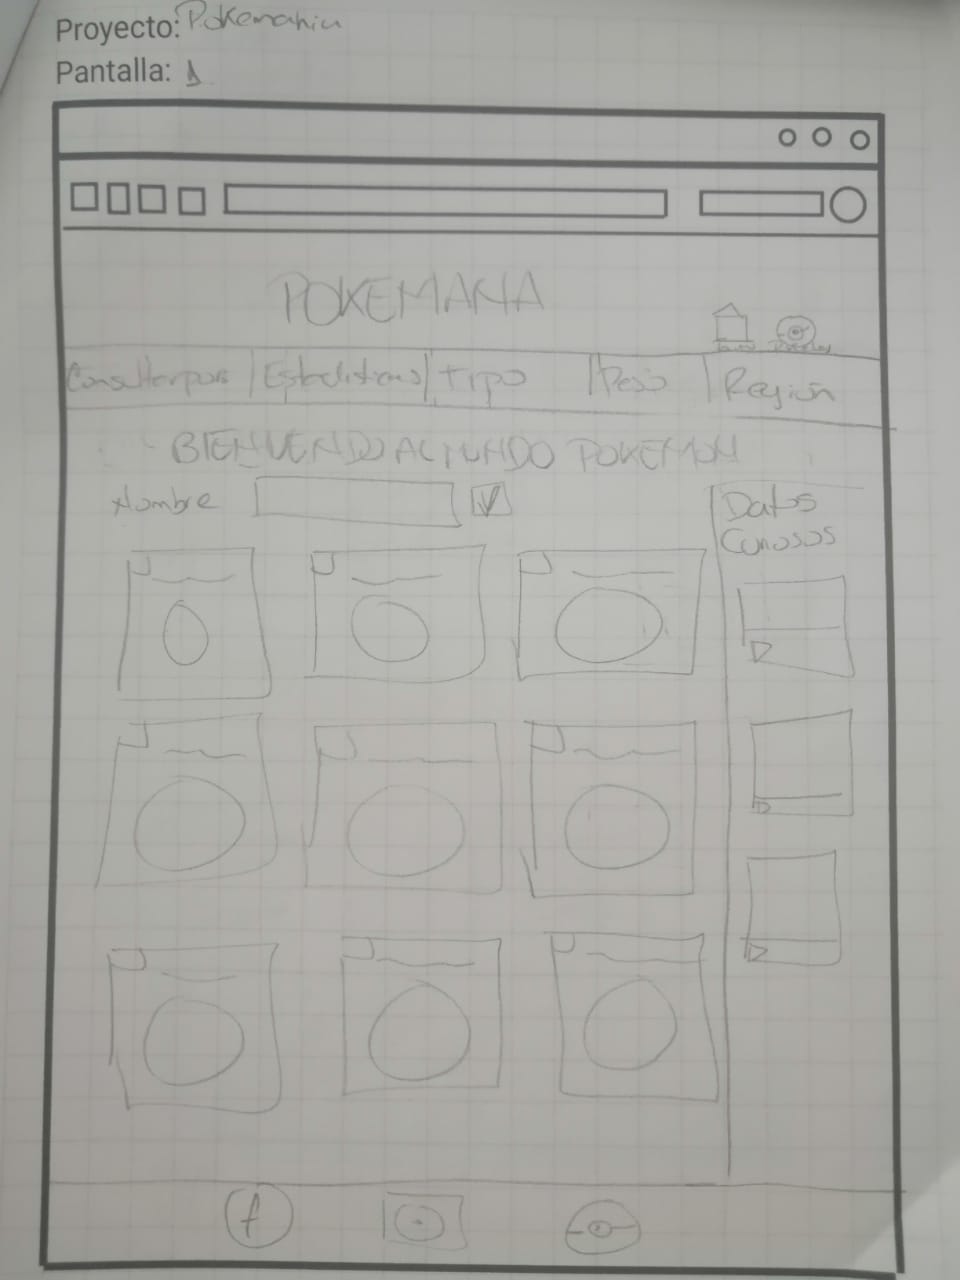 Proyecto: Pokemania
Pantalla: 1
POKEMANIA
Consultar por | Estadisticas | Tipo | Peso | Región
BIENVENIDO AL MUNDO POKEMON
Nombre
Datos
Curiosos
f